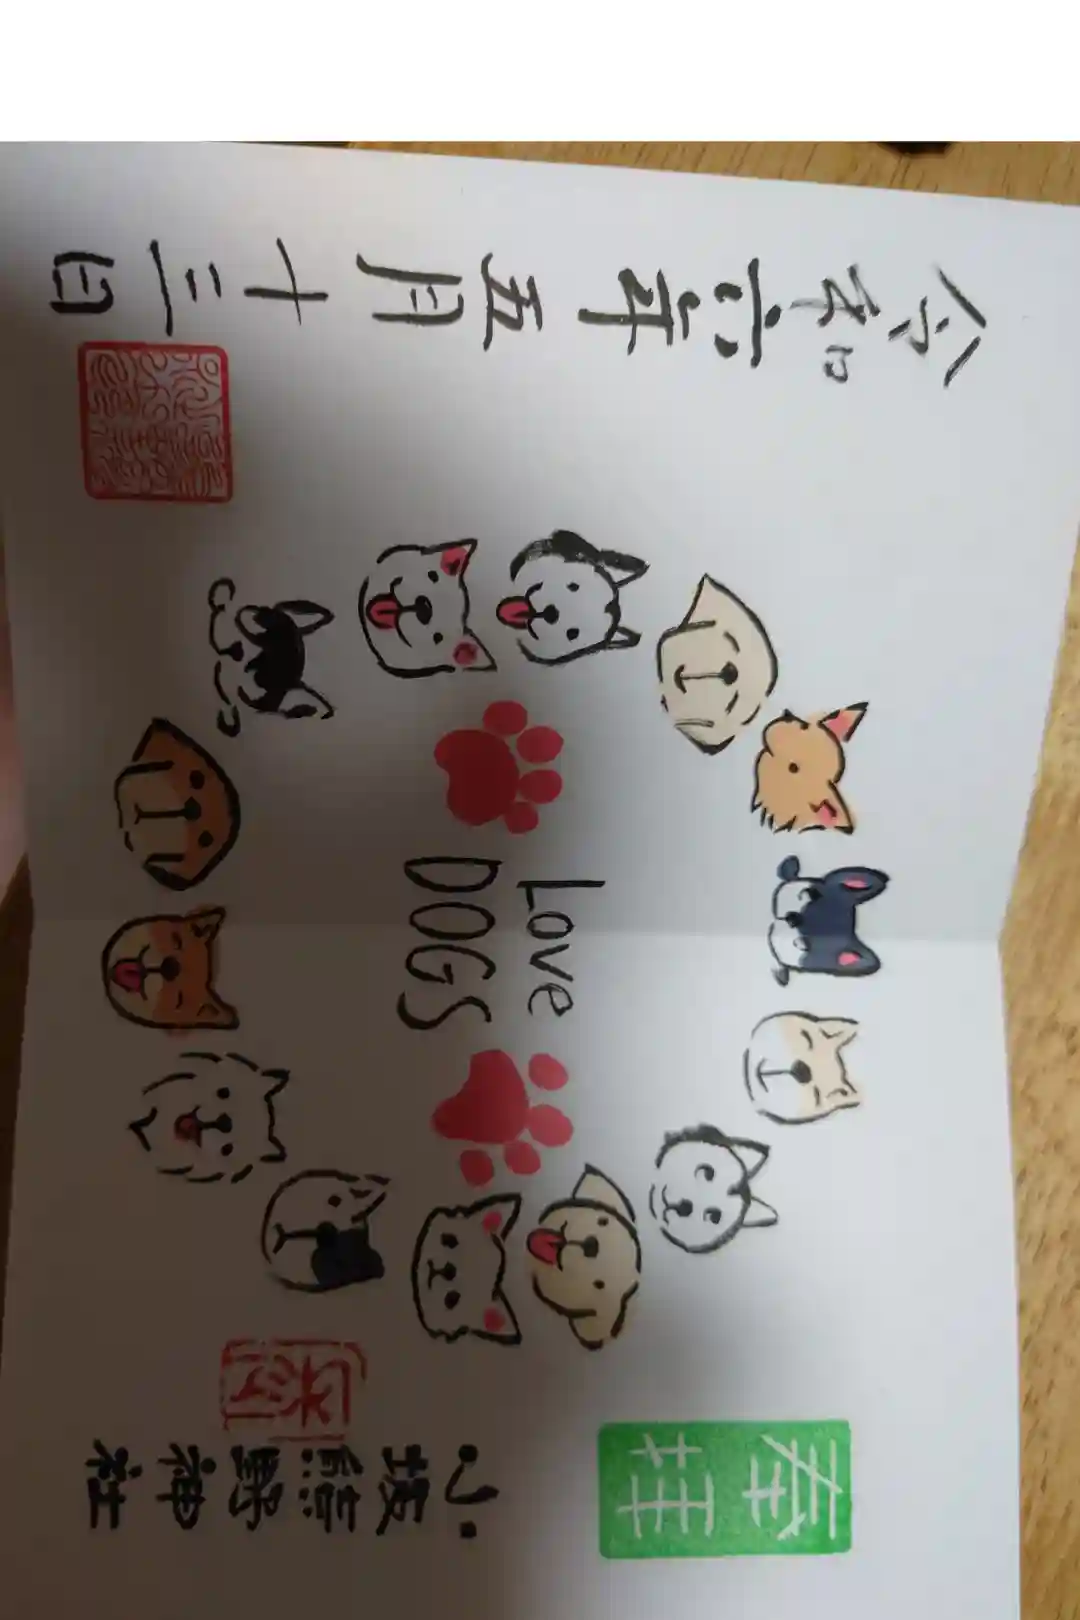 奉拝
小坂熊野神社
Love
DOGS
令和六年五月十三日